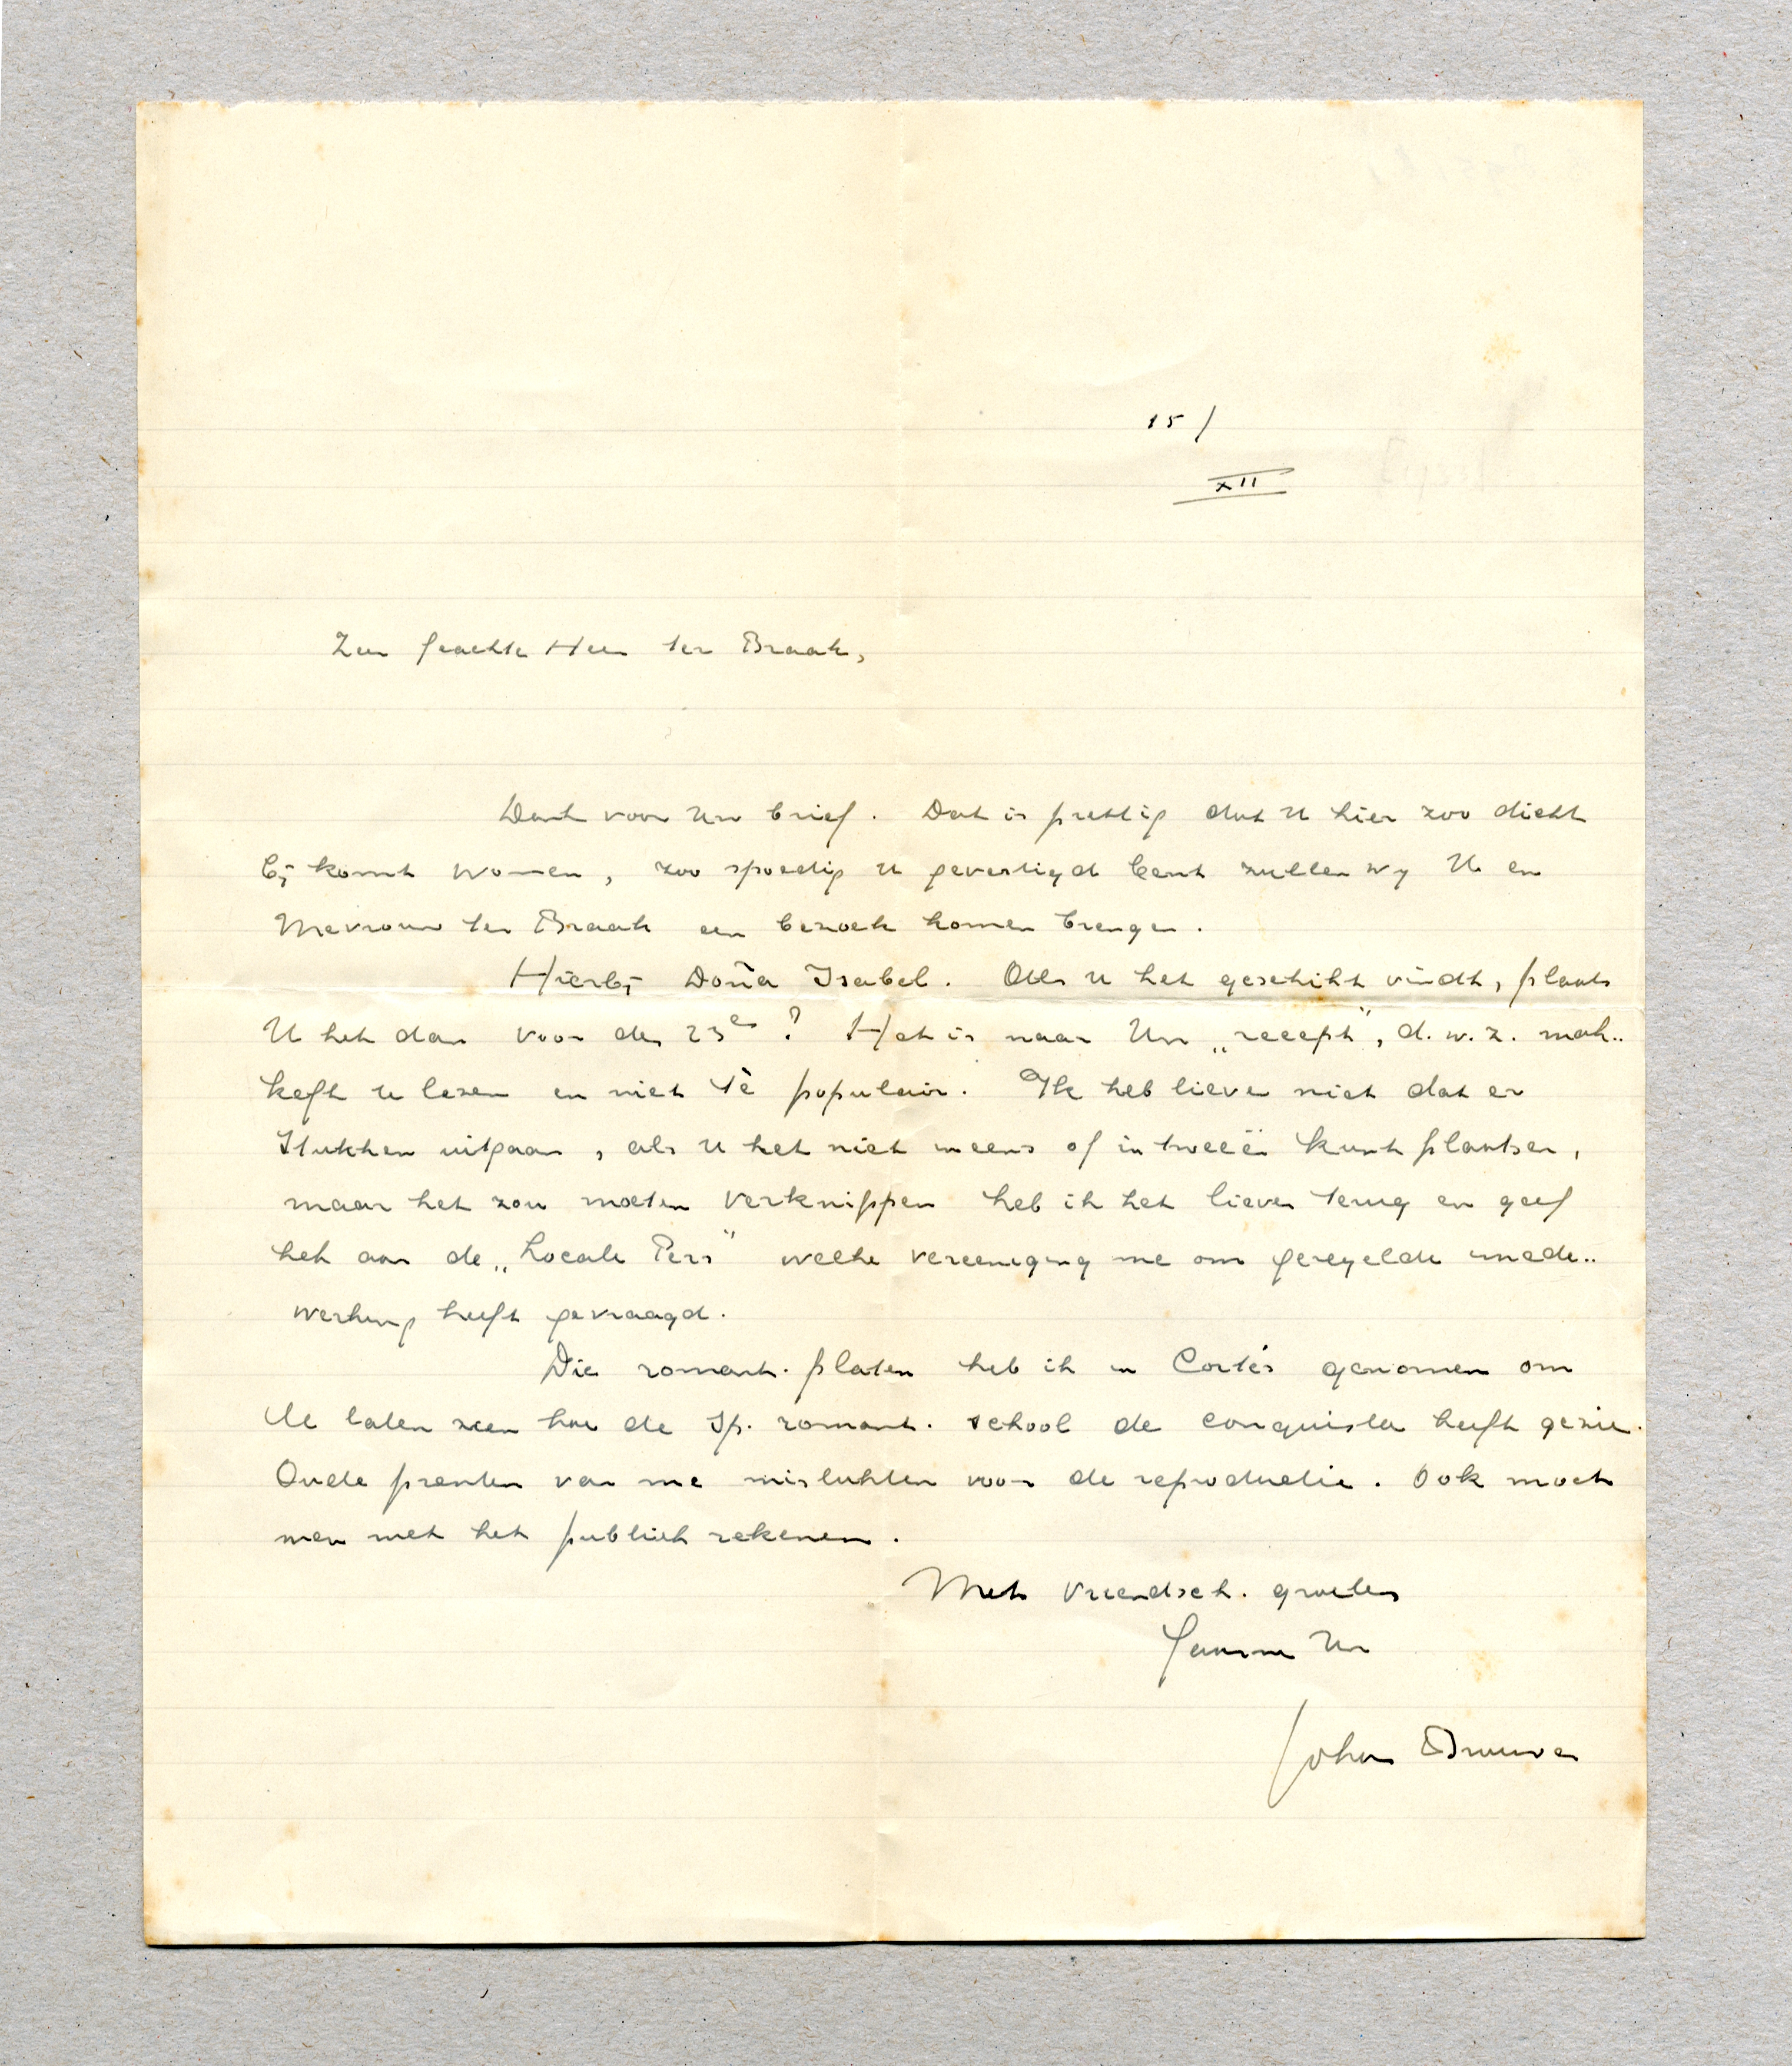 15/
XII
Zeer geachte Heer ter Braak,
Dank voor Uw brief. Dat is prettig dat U hier zoo dicht
bij komt wonen, zoo spoedig U gevestigd bent zullen wij U en
Mevrouw ter Braak een bezoek komen brengen.
Hierbij Doña Isabel. Als U het geschikt vindt, plaats
U het dan voor de 23e? Het is naar Uw „recept”, d.w.z. mak..
kelijk te lezen en niet tè populair. Ik heb liever niet dat er
stukken uitgaan, als U het niet ineens of in tweeën kunt plaatsen,
maar het zou moeten verknippen heb ik het liever terug en geef
het aan de „Locale Pers” welke vereeniging me om geregelde mede..
werking heeft gevraagd.
Die romant. platen heb ik in Cortés genomen om
te laten zien hoe de Sp. romant. school de conquista heeft gezien.
Oude prenten van me mislukten voor de reproductie. Ook moet
men met het publiek rekenen.
Met vriendsch. groeten
Uw
Johan Brouwer